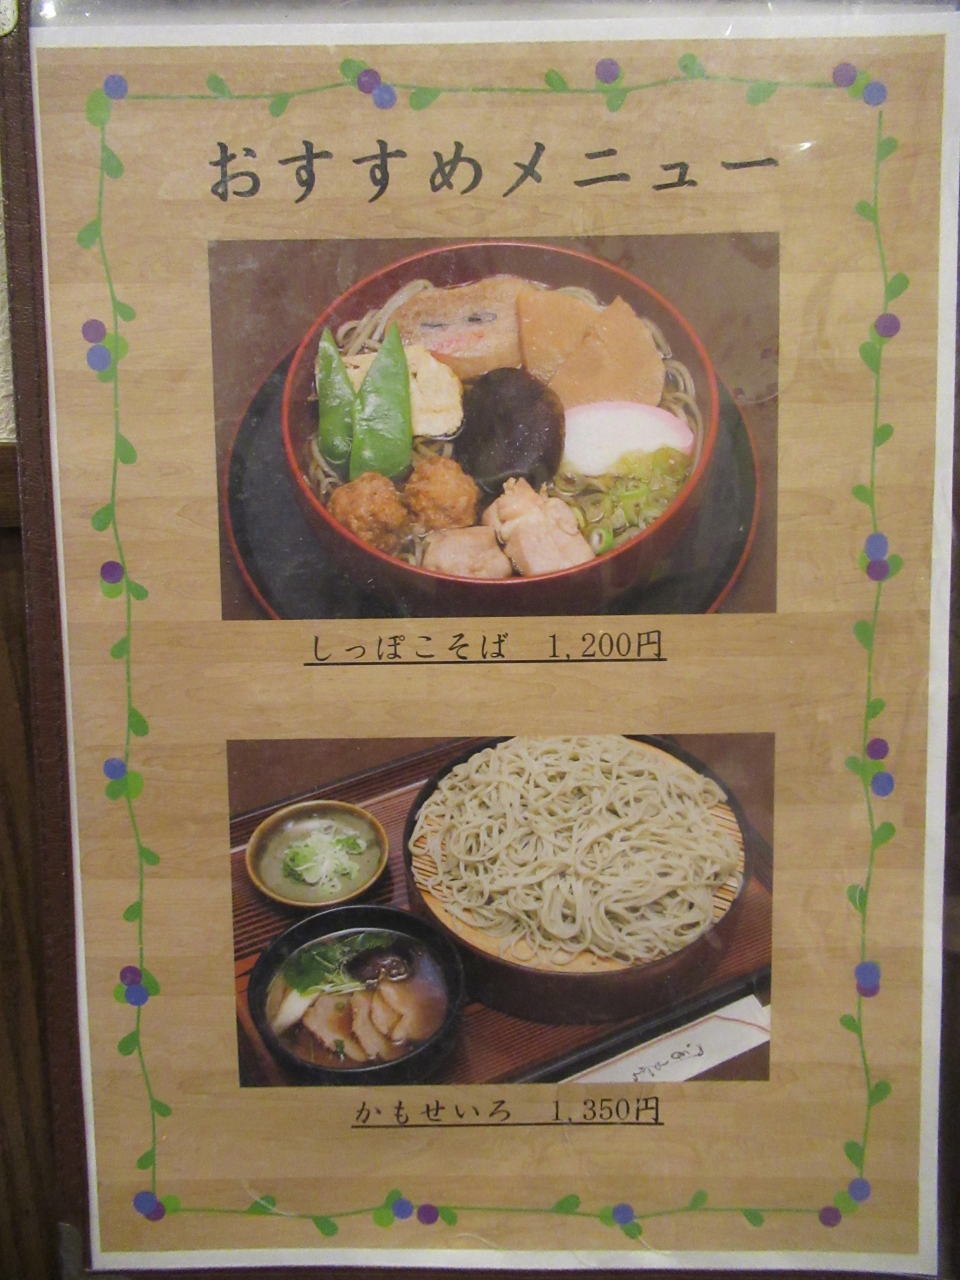 おすすめメニュー
しっぽこそば　1,200円
かもせいろ　1,350円